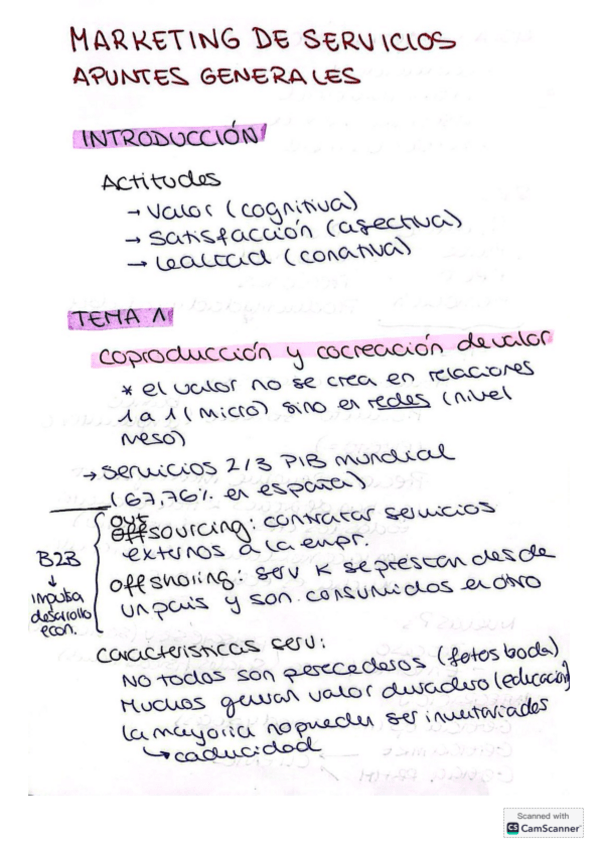 MARKETING DE SERVICIOS
APUNTES GENERALES
INTRODUCCIÓN
Actitudes
→ Valor (cognitiva)
→ Satisfacción (afectiva)
→ Lealtad (conativa)
TEMA 1
coproducción y cocreación de valor
* el valor no se crea en relaciones
1 a 1 (micro) sino en redes (nivel
meso)
→ servicios 2/3 PIB mundial
(67,76% en españa)
outsourcing: contratar servicios
externos a la empr.
offshoring: serv k se prestan desde
un país y son consumidos en otro
B2B
↓
impulsa
desarrollo
econ.
características serv:
No todos son perecederos (fotos boda)
Muchos generan valor duradero (educación)
la mayoría no pueden ser inventariados
↳ caducidad
Scanned with
CS CamScanner